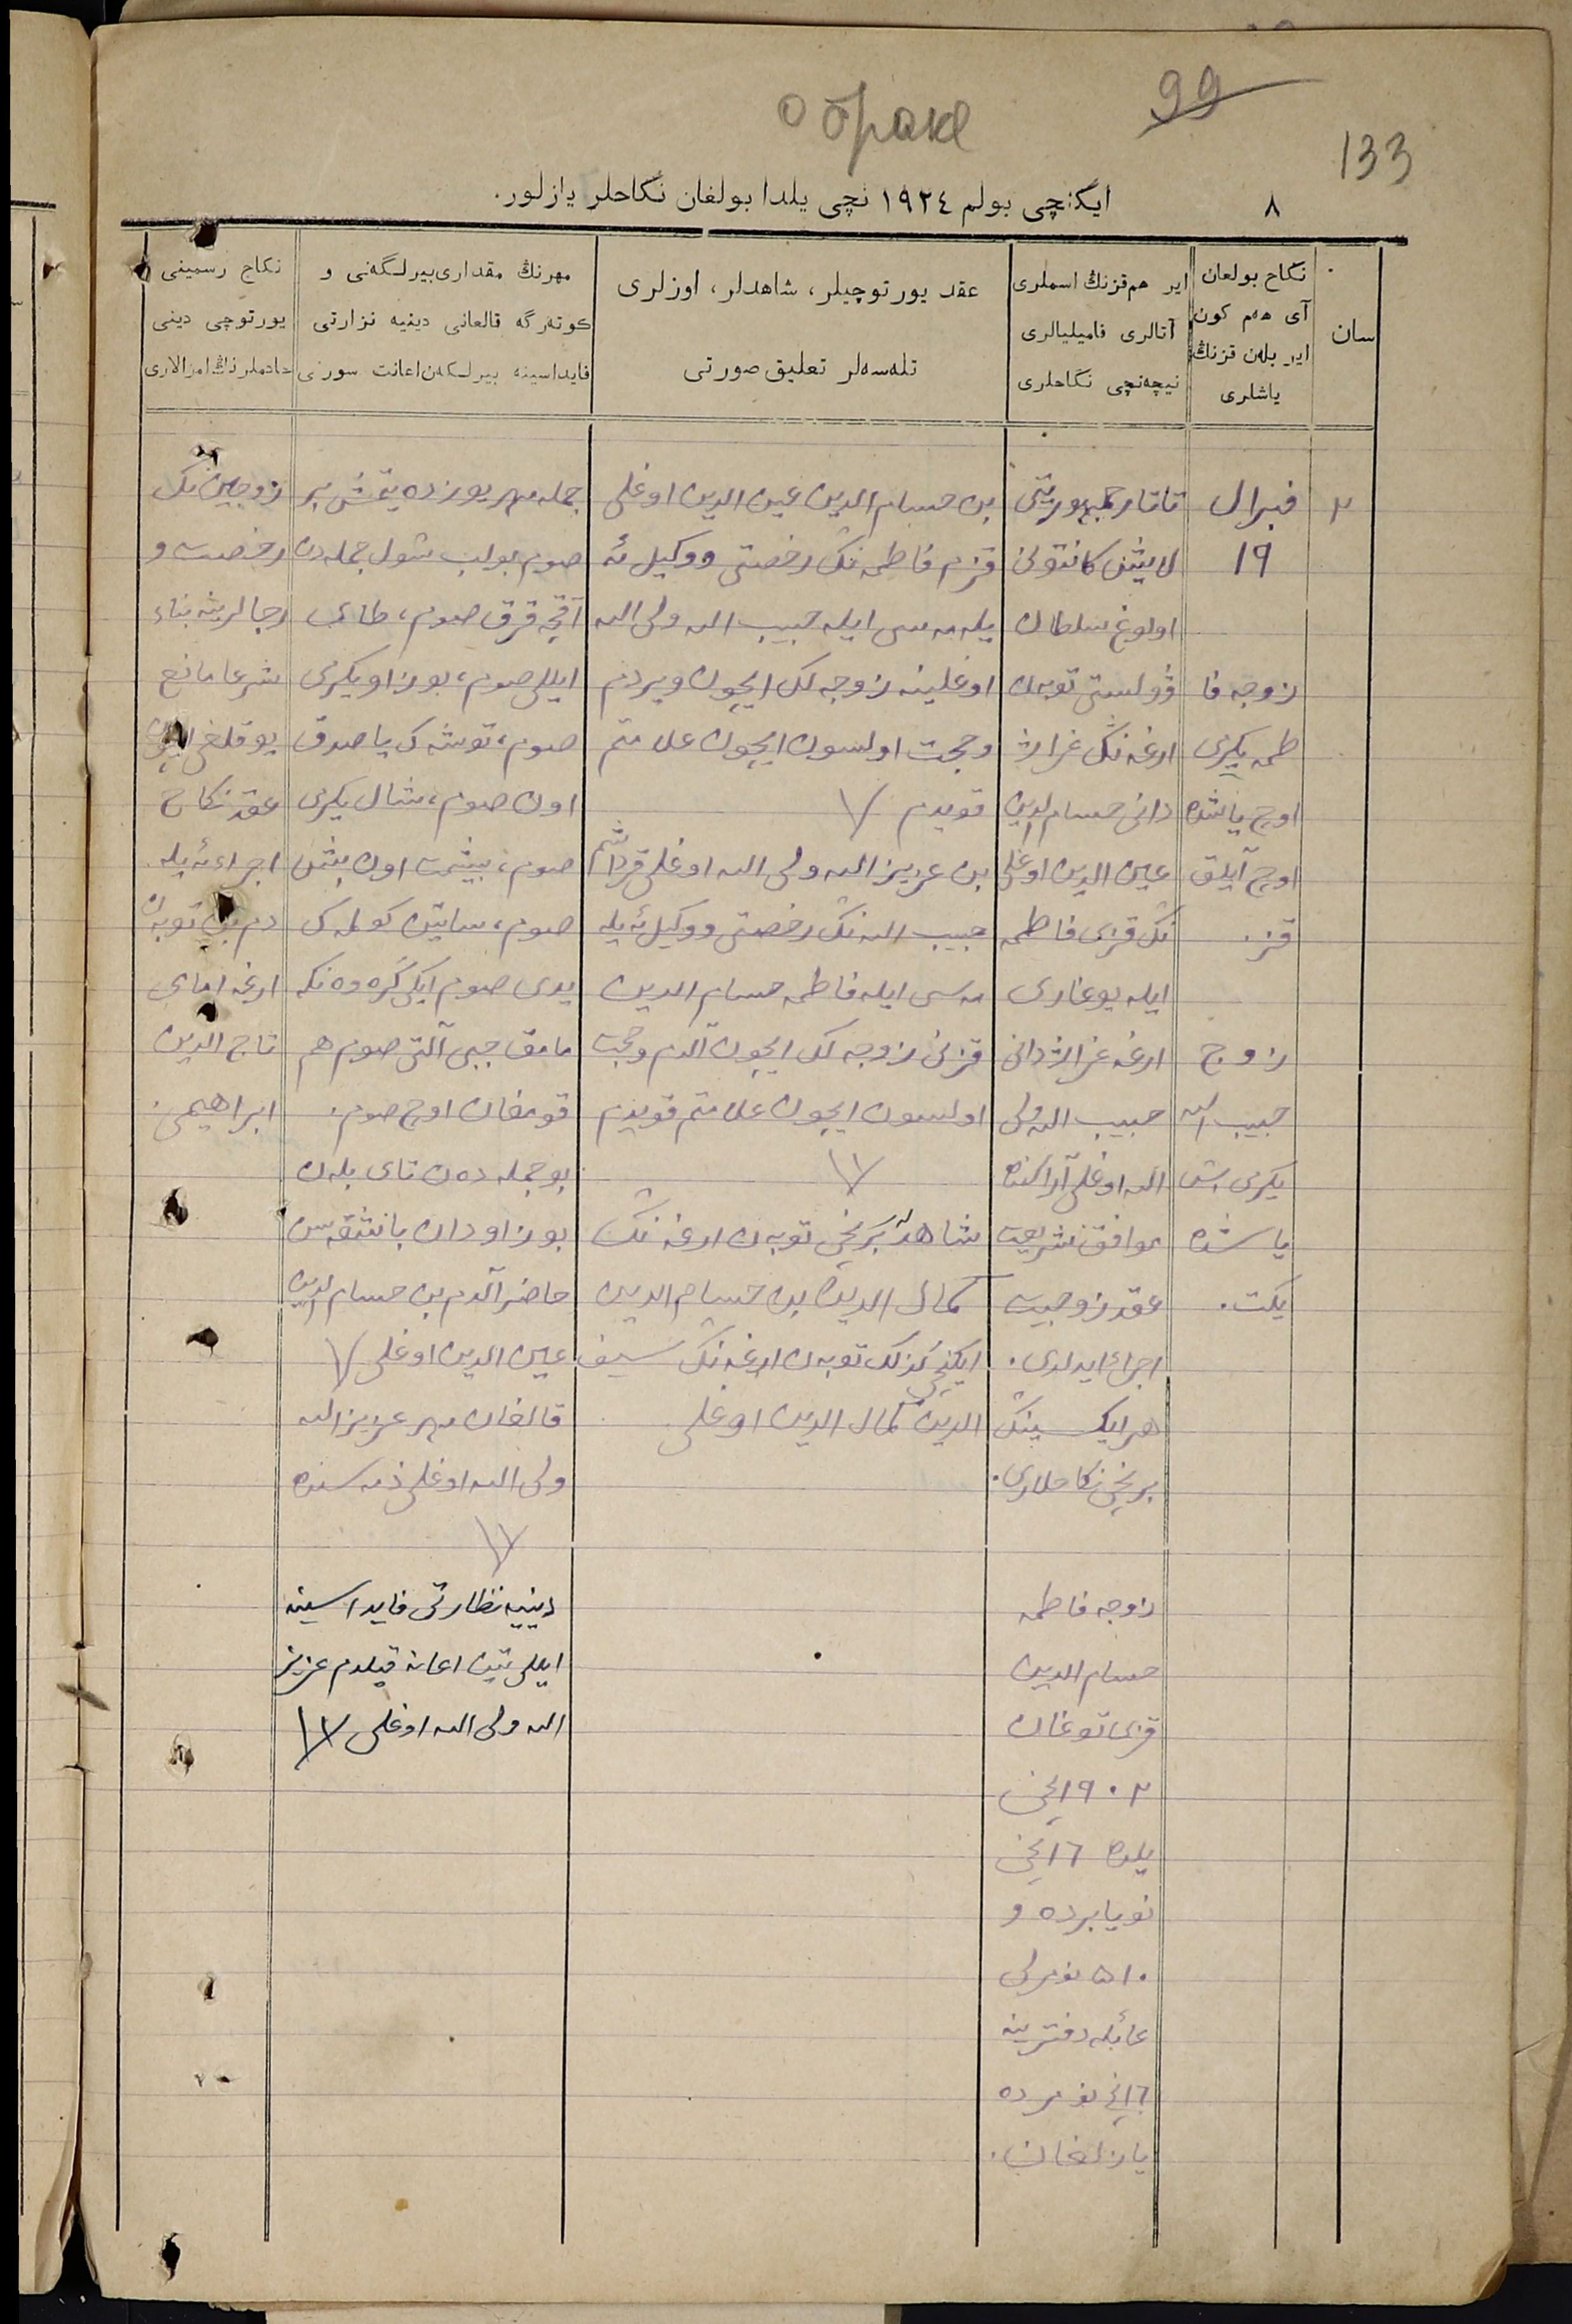 о браке
99
133
٨
ایکنچی بولم ١٩٢٤ نچی یلدا بولغان نکاحلر یازلور.
سان
نکاح بولغان
آی هەم کون
ایر بلەن قزنڭ
یاشلری
ایر هم قزنڭ اسملری
آتالری فامیلیالری
نیچەنچی نکاحلری
عقد یورتوچیلر، شاهدلر، اوزلری
تلەسەلر تعلیق صورتی
مهرنڭ مقداری بیرلگەنی و
کوتەرگە قالغانی دینیه نزارتی
فایداسینه بیرلگەن اعانت سورنی
نکاح رسمینی
یورتوچی دینی
خادملرنڭ امزالاری
٢
فبرال
١٩
زوجه فا
طمه یکرمی
اوچ یاشده
اوچ آیلق
قز.
زوج
حبیب الله
یکرمی بش
یاشده
یکت.
تاتار جمهوریتی
لایش کانتونی
اولوغ سلطان
ڤولستی توبەن
ارغه نڭ
دانی حسام الدین
عین الدین اوغلی
نڭ قزی فاطمه
ایله یوغاری
ارغه
حبیب الله ولی
الله اوغلی آراسنده
موافق شریعت
عقد زوجیت
اجراء ایدلدی.
هر ایکیسینڭ
برنچی نکاحلاری.
زوجه فاطمه
حسام الدین
قزی توغان
١٩٠٢ نچی
یلده ١٦ نچی
نویابرده و
٥١٠ نومرلی
عائله دفترینه
١٦ نچی نومرده
یازلغان.
بن حسام الدین عین الدین اوغلی
قزم فاطمه نڭ رخصتی و وکیل ئه
یله مەسی ایله حبیب الله ولی الله
اوغلینه زوجه لک ایچون ویردم
و حجت اولسون ایچون علامتم
قویدم
بن عزیز الله ولی الله اوغلی قرداشم
حبیب الله نڭ رخصتی و وکیل ئه یله
مەسی ایله فاطمه حسام الدین
قزنی زوجه لک ایچون آلدم و حجت
اولسون ایچون علامتم قویدم
شاهدلر برنچی توبەن ارغه نڭ
کمال الدین بن حسام الدین
ایکنچی توبەن ارغه نڭ سیف
الدین کمال الدین اوغلی
جمله مهر یوزده یتمش بر
صوم بولب شول جمله دن
آقچه قرق صوم،
ایللی صوم، بوزاو یکرمی
صوم، توشەک یاصدق
اون صوم، شال یکرمی
صوم، بیشمت اون بش
صوم، ساتین کولمەک
یدی صوم ایکی
آلتی صوم هم
قومغان اوچ صوم.
بو جمله دەن تای بلەن
بوزاودان باشقەسن
حاضر آلدم بن حسام الدین
عین الدین اوغلی
قالغان مهر عزیز الله
ولی الله اوغلی ذمەسنده
دینیه نظارتی فایداسینه
ایللی تین اعانه قیلدم عزیز
الله ولی الله اوغلی
زوجین نڭ
رخصت و
رجالرینه بناء
شرعا مانع
یوقلغی ایچون
عقد نکاح
اجراء ئه یله
دم بن توبەن
ارغه امامی
تاج الدین
ابراهیمی.